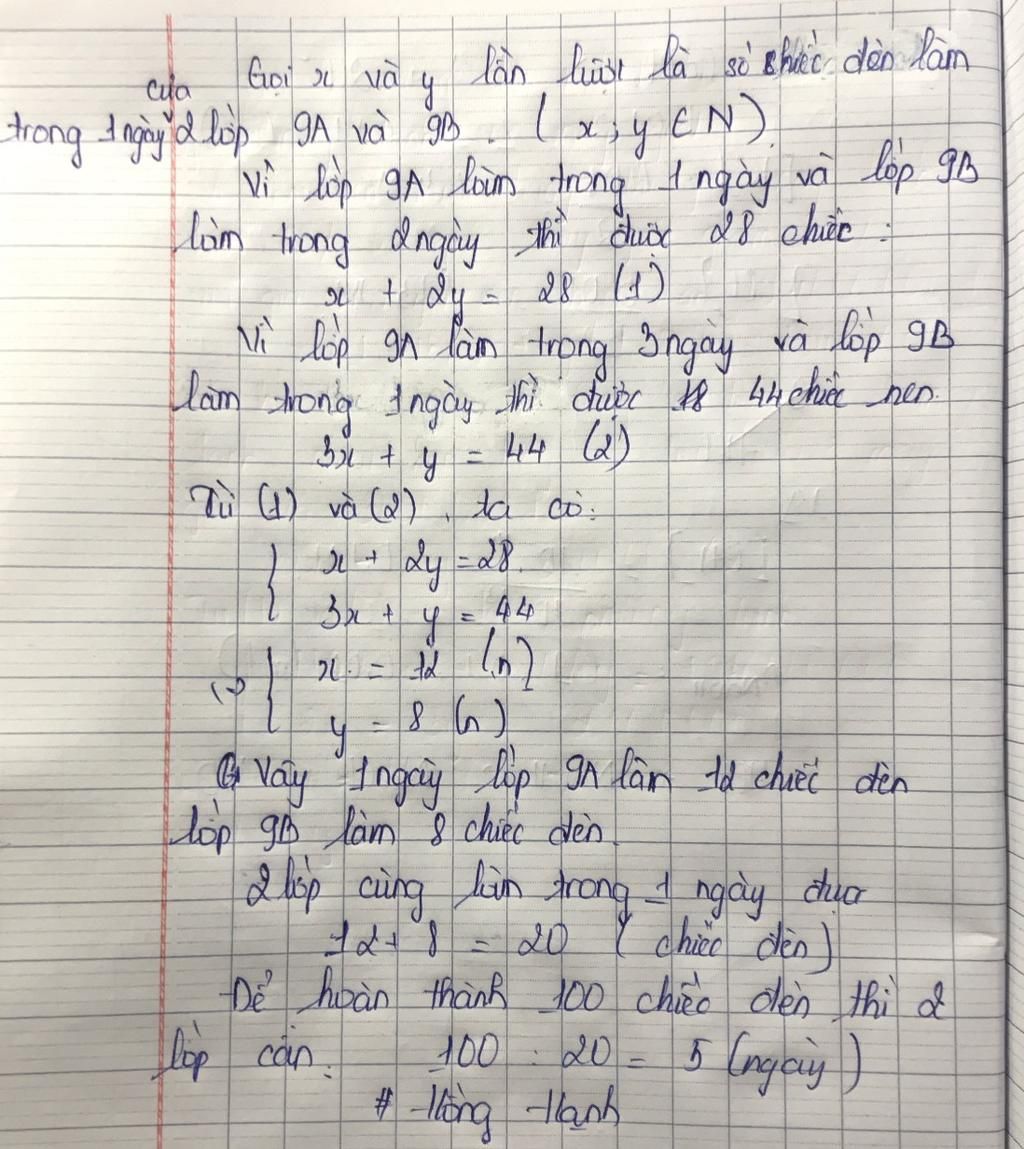 Gọi x và y lần lượt là số chiếc đèn làm
của
trong 1 ngày 2 lớp 9A và 9B. (x; y ∈ N)
Vì lớp 9A làm trong 1 ngày và lớp 9B
làm trong 2 ngày thì được 28 chiếc:
x + 2y = 28 (1)
Vì lớp 9A làm trong 3 ngày và lớp 9B
làm trong 1 ngày thì được 44 chiếc nen.
3x + y = 44 (2)
Từ (1) và (2), ta có:
x + 2y = 28.
3x + y = 44
(=) x = 12 (n)
y = 8 (n)
Vậy 1 ngày lớp 9A làm 12 chiếc đèn
lớp 9B làm 8 chiếc đèn.
2 lớp cùng làm trong 1 ngày đươ
12 + 8 = 20 (chiếc đèn)
Để hoàn thành 100 chiếc đèn thì 2
lớp cần: 100 : 20 = 5 (ngày)
# Hồng Hạnh